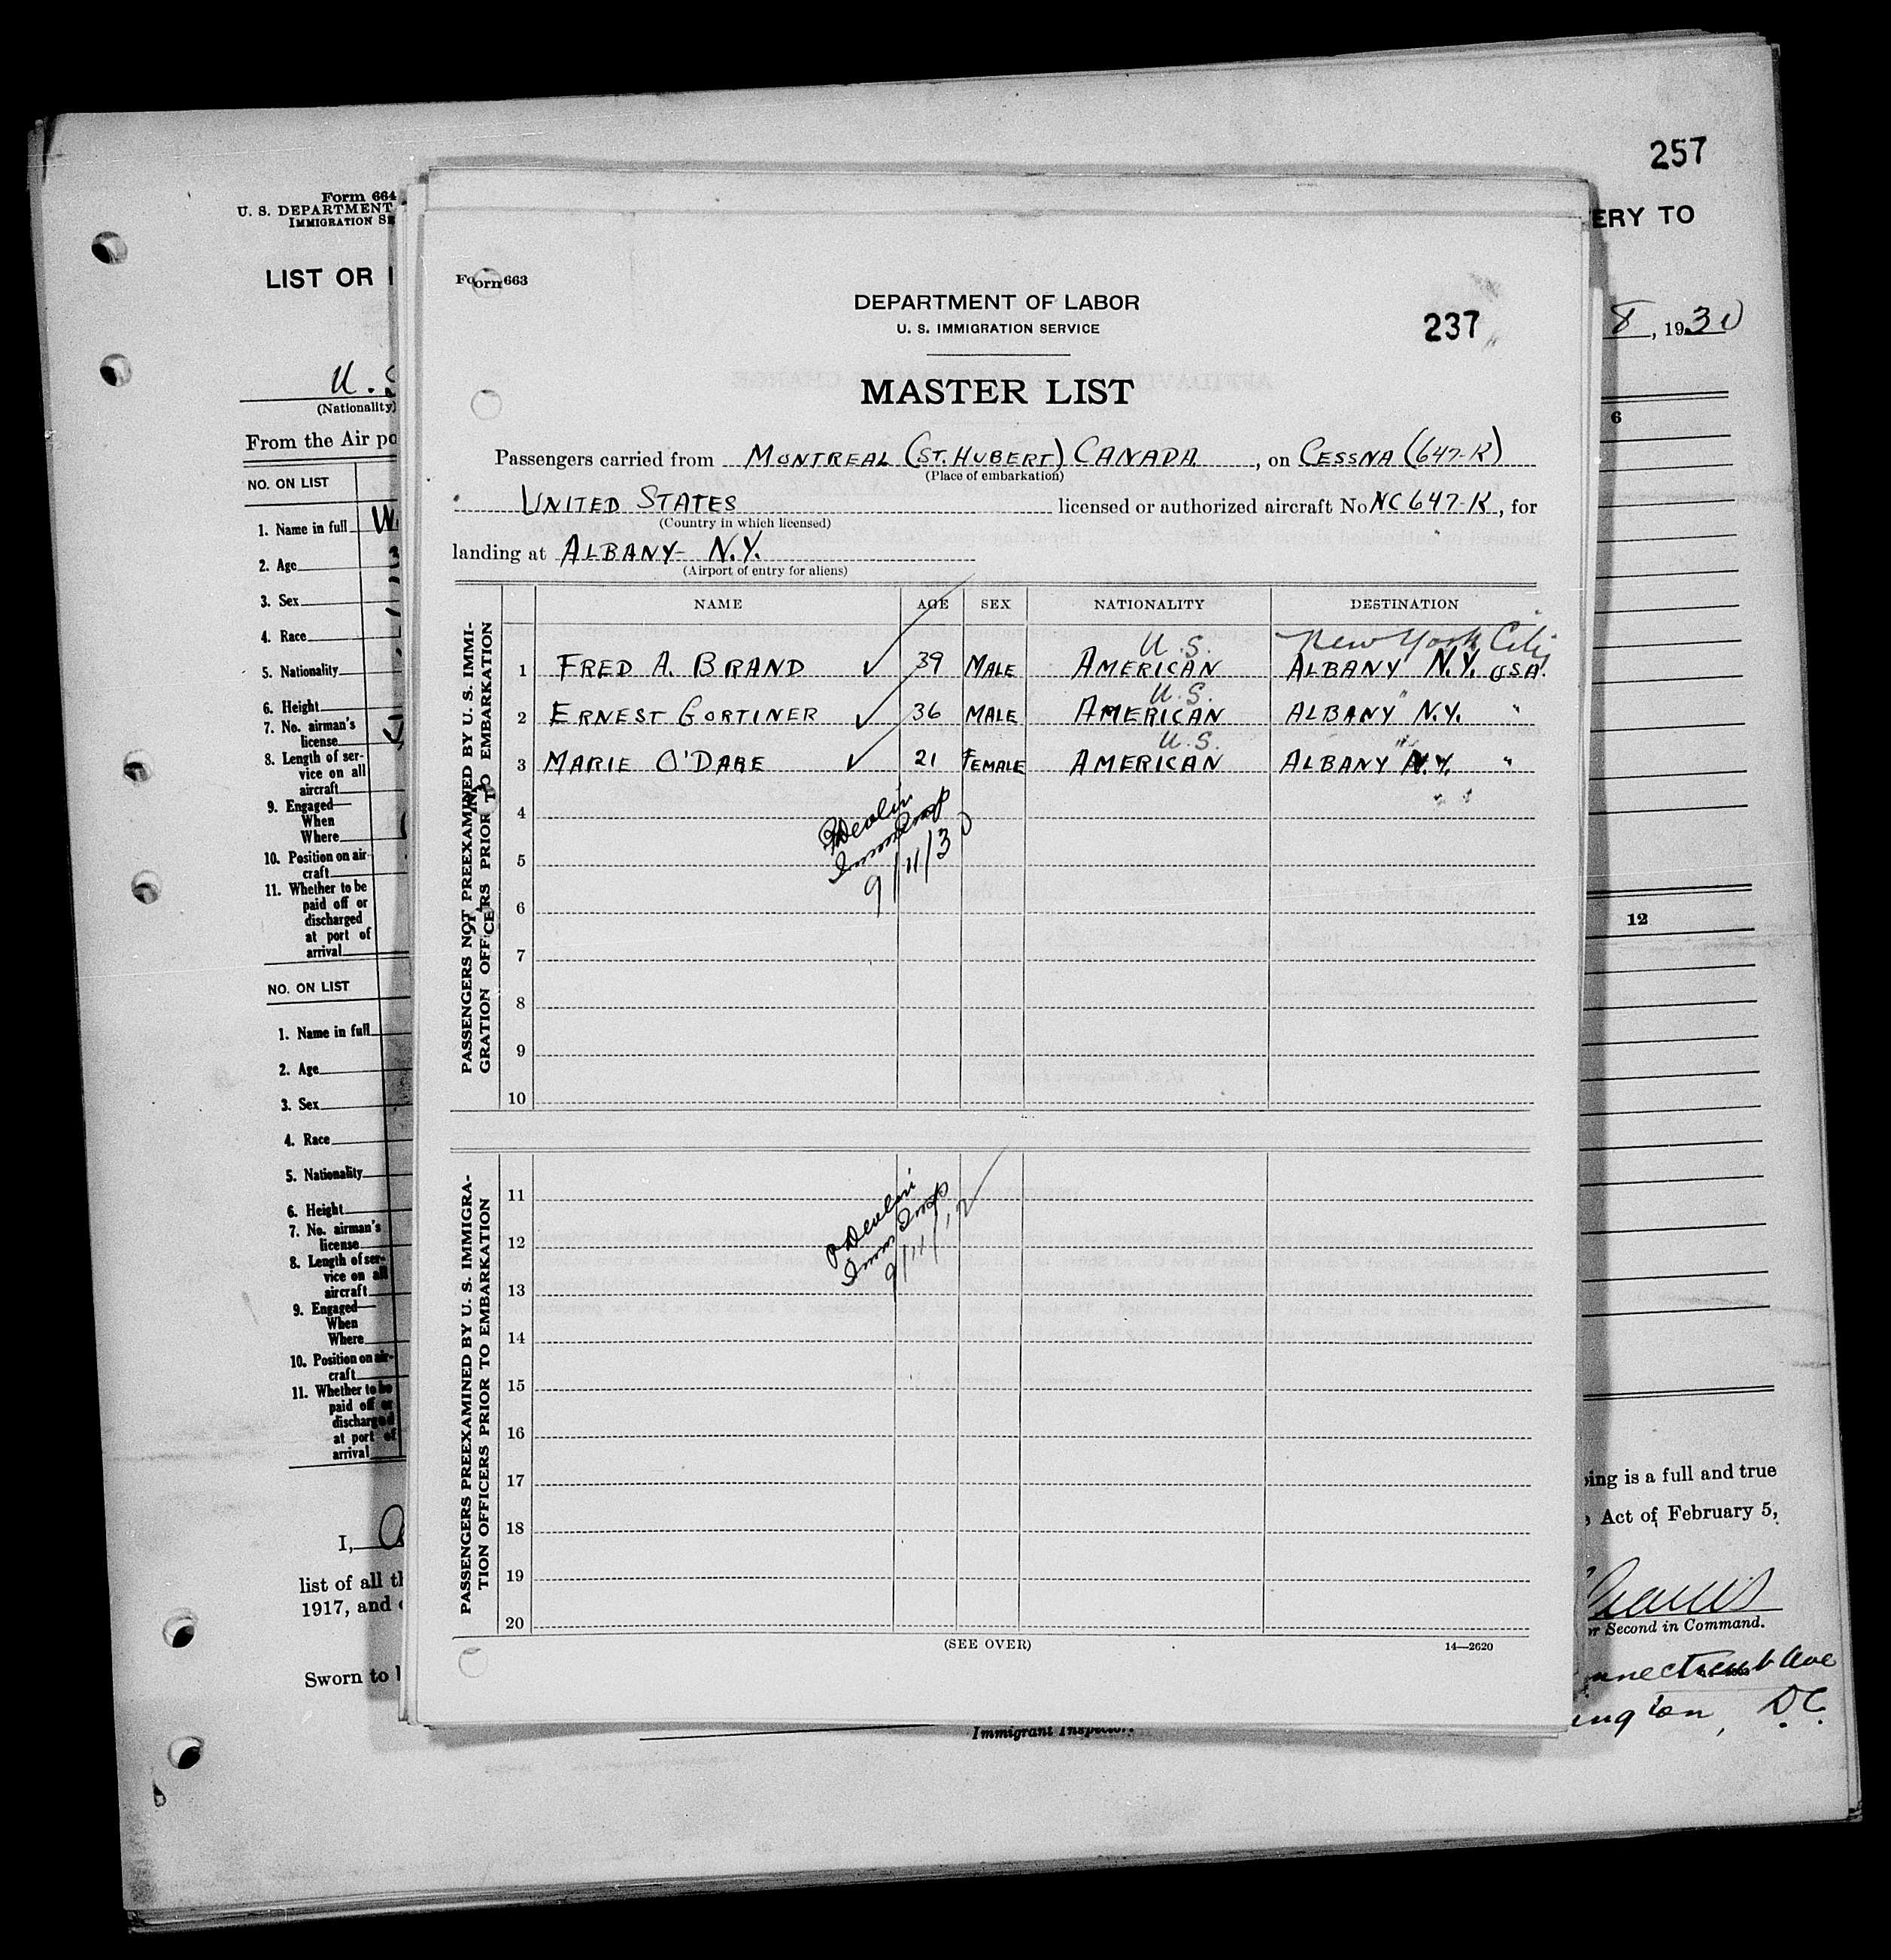 257
Form 664
U. S. DEPARTMENT
IMMIGRATION SE
ERY TO
LIST OR
8, 1930
U.S
(Nationality)
From the Air po
6
NO. ON LIST
1. Name in full
2. Age
3. Sex
4. Race
5. Nationality
6. Height
7. No. airman's
license
8. Length of ser-
vice on all
aircraft
9. Engaged—
When
Where
10. Position on air-
craft
11. Whether to be
paid off or
discharged
at port of
arrival
12
NO. ON LIST
1. Name in full
2. Age
3. Sex
4. Race
5. Nationality
6. Height
7. No. airman's
license
8. Length of ser-
vice on all
aircraft
9. Engaged—
When
Where
10. Position on air-
craft
11. Whether to be
paid off or
discharged
at port of
arrival
I,
list of all th
1917, and
Sworn to b
oing is a full and true
Act of February 5,
or Second in Command.
nnecticut Ave
ington, D.C.
Immigrant Inspector.
Form 663
DEPARTMENT OF LABOR
U. S. IMMIGRATION SERVICE
237
MASTER LIST
Passengers carried from MONTREAL (ST. HUBERT) CANADA, on CESSNA (647-K)
(Place of embarkation)
UNITED STATES licensed or authorized aircraft No NC647-K, for
(Country in which licensed)
landing at ALBANY- N.Y.
(Airport of entry for aliens)
PASSENGERS NOT PREEXAMINED BY U. S. IMMI-
GRATION OFFICERS PRIOR TO EMBARKATION
NAME AGE SEX NATIONALITY DESTINATION
U.S. New York City
1 FRED A. BRAND ✓ 39 MALE AMERICAN ALBANY N.Y. USA.
U.S. "
2 ERNEST GORTINER ✓ 36 MALE AMERICAN ALBANY N.Y. "
U.S. "
3 MARIE O'DARE ✓ 21 FEMALE AMERICAN ALBANY N.Y. "
4
Devlin
Imm Insp
9/11/30
5
6
7
8
9
10
PASSENGERS PREEXAMINED BY U. S. IMMIGRA-
TION OFFICERS PRIOR TO EMBARKATION
11
Devlin
Imm Insp
9/11/
12
13
14
15
16
17
18
19
20
(SEE OVER)
14—2620